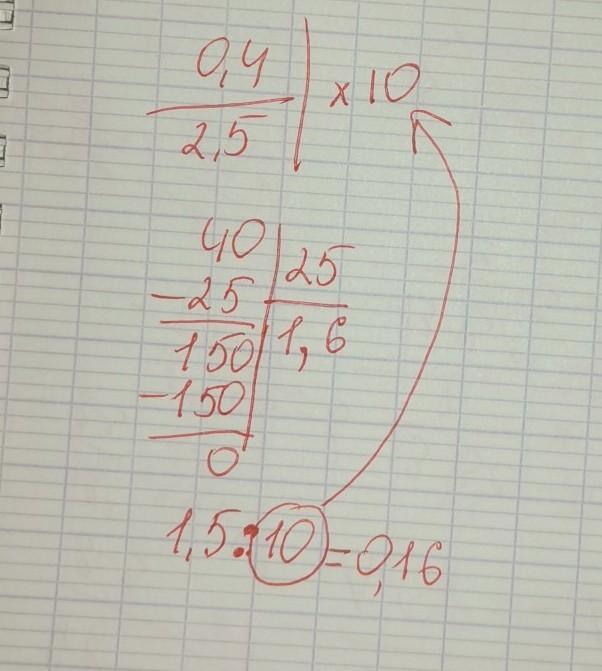 0,4 | x 10
2,5
40 | 25
-25 | 1,6
150
-150
0
1,5:10=0,16